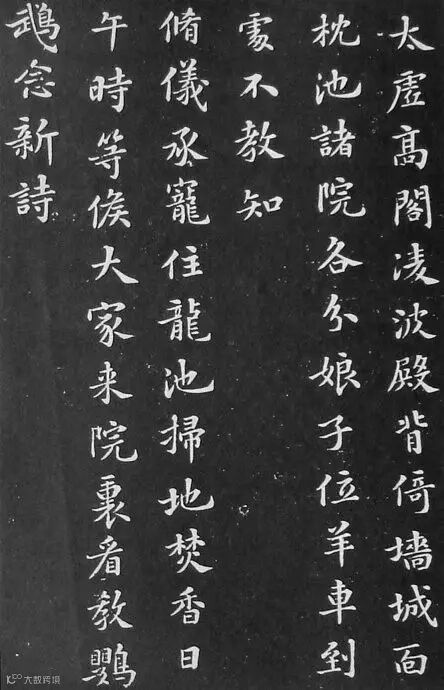 太虛高閣凌波殿背倚墻城面
枕池諸院各分娘子位羊車到
處不教知
脩儀承寵住龍池掃地焚香日
午時等候大家来院裏看教鸚
鵡念新詩
大数跨境